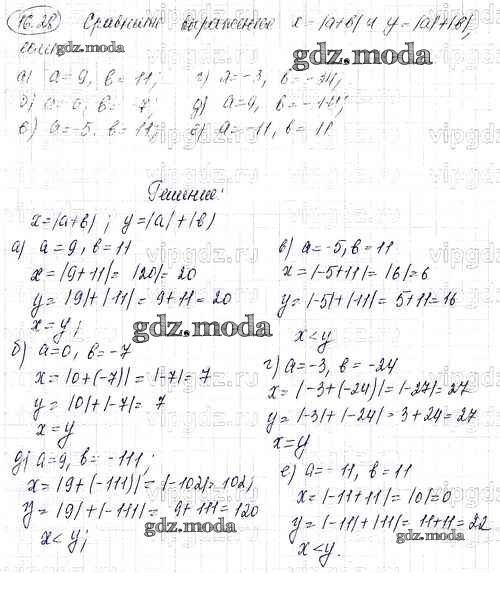 16.28 Сравнить выражения x=|a+b| и y=|a|+|b|,
если
gdz.moda
а) a=9, b=11; г) a=-3, b=-34;
б) a=0, b=-7; д) a=9, b=-111;
в) a=-5, b=11; е) a=-11, b=11
Решение:
x=|a+b|; y=|a|+|b|
а) a=9, b=11
x=|9+11|=|20|=20
y=|9|+|11|=9+11=20
x=y;
gdz.moda
б) a=0, b=-7
x=|0+(-7)|=|-7|=7
y=|0|+|-7|=7
x=y
д) a=9, b=-111;
x=|9+(-111)|=|-102|=102;
y=|9|+|-111|=9+111=120
gdz.moda
x<y;
в) a=-5, b=11
x=|-5+11|=|6|=6
y=|-5|+|11|=5+11=16
x<y
г) a=-3, b=-24
x=|-3+(-24)|=|-27|=27
y=|-3|+|-24|=3+24=27
x=y
е) a=-11, b=11
x=|-11+11|=|0|=0
y=|-11|+|11|=11+11=22
gdz.moda
x<y.
vipgdz.ru